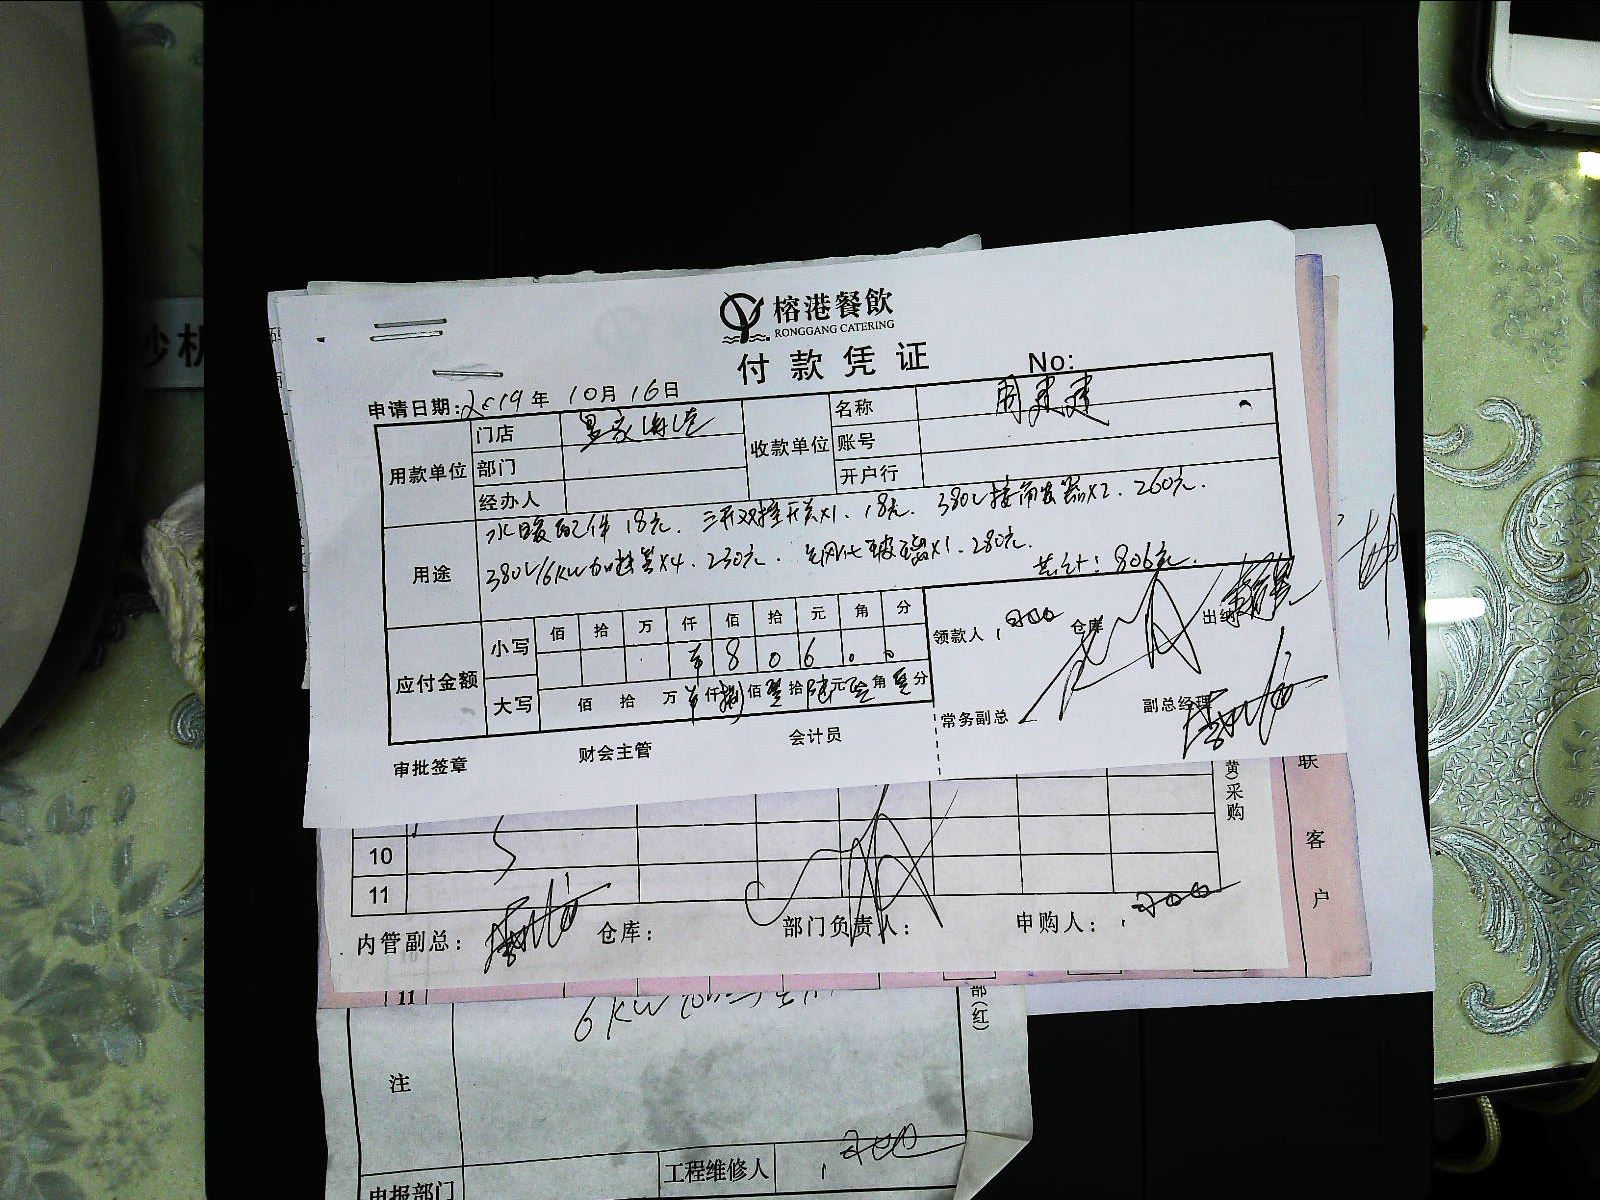 榕港餐飲
RONGGANG CATERING
付款凭证
No:
申请日期: 2019 年 10 月 16 日
用款单位 门店
部门
经办人
收款单位 名称 周建建
账号
开户行
用途 水暖配件 18元. 三开双控开关x1. 18元. 380V接触器x2. 260元.
380V/6KW加热管x4. 230元. 钢化玻璃x1. 280元.
共计: 806元.
应付金额 小写 佰 拾 万 仟 佰 拾 元 角 分
8 0 6 . 0 0
大写 佰 拾 万 仟 捌 佰 零 拾 陆 元 零 角 零 分
领款人 仓库 出纳
常务副总 副总经理
审批签章 财会主管 会计员
10
11
内管副总: 仓库: 部门负责人: 申购人:
(黄)采购
联
客
户
11
6KW
部(红)
注
工程维修人
申报部门